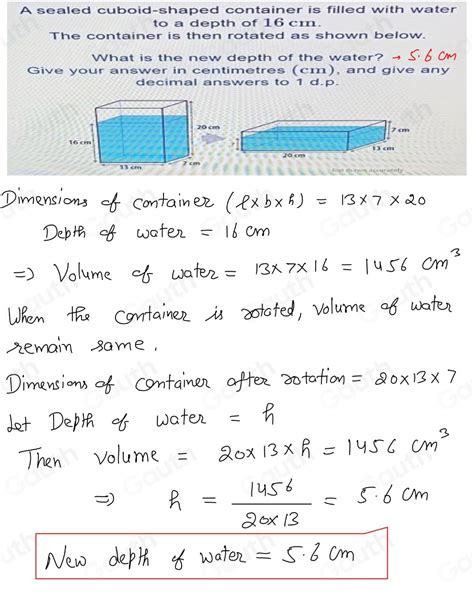 A sealed cuboid-shaped container is filled with water
to a depth of 16 cm.
The container is then rotated as shown below.
What is the new depth of the water? → 5.6 cm
Give your answer in centimetres (cm), and give any
decimal answers to 1 d.p.
20 cm
7 cm
16 cm
13 cm
20 cm
13 cm
7 cm
Not drawn accurately
Dimensions of container (l x b x h) = 13 x 7 x 20
Depth of water = 16 cm
=> Volume of water = 13x7x16 = 1456 cm³
When the container is rotated, volume of water
remain same.
Dimensions of container after rotation = 20x13x7
Let Depth of water = h
Then volume = 20x13xh = 1456 cm³
=> h = 1456 / 20x13 = 5.6 cm
New depth of water = 5.6 cm